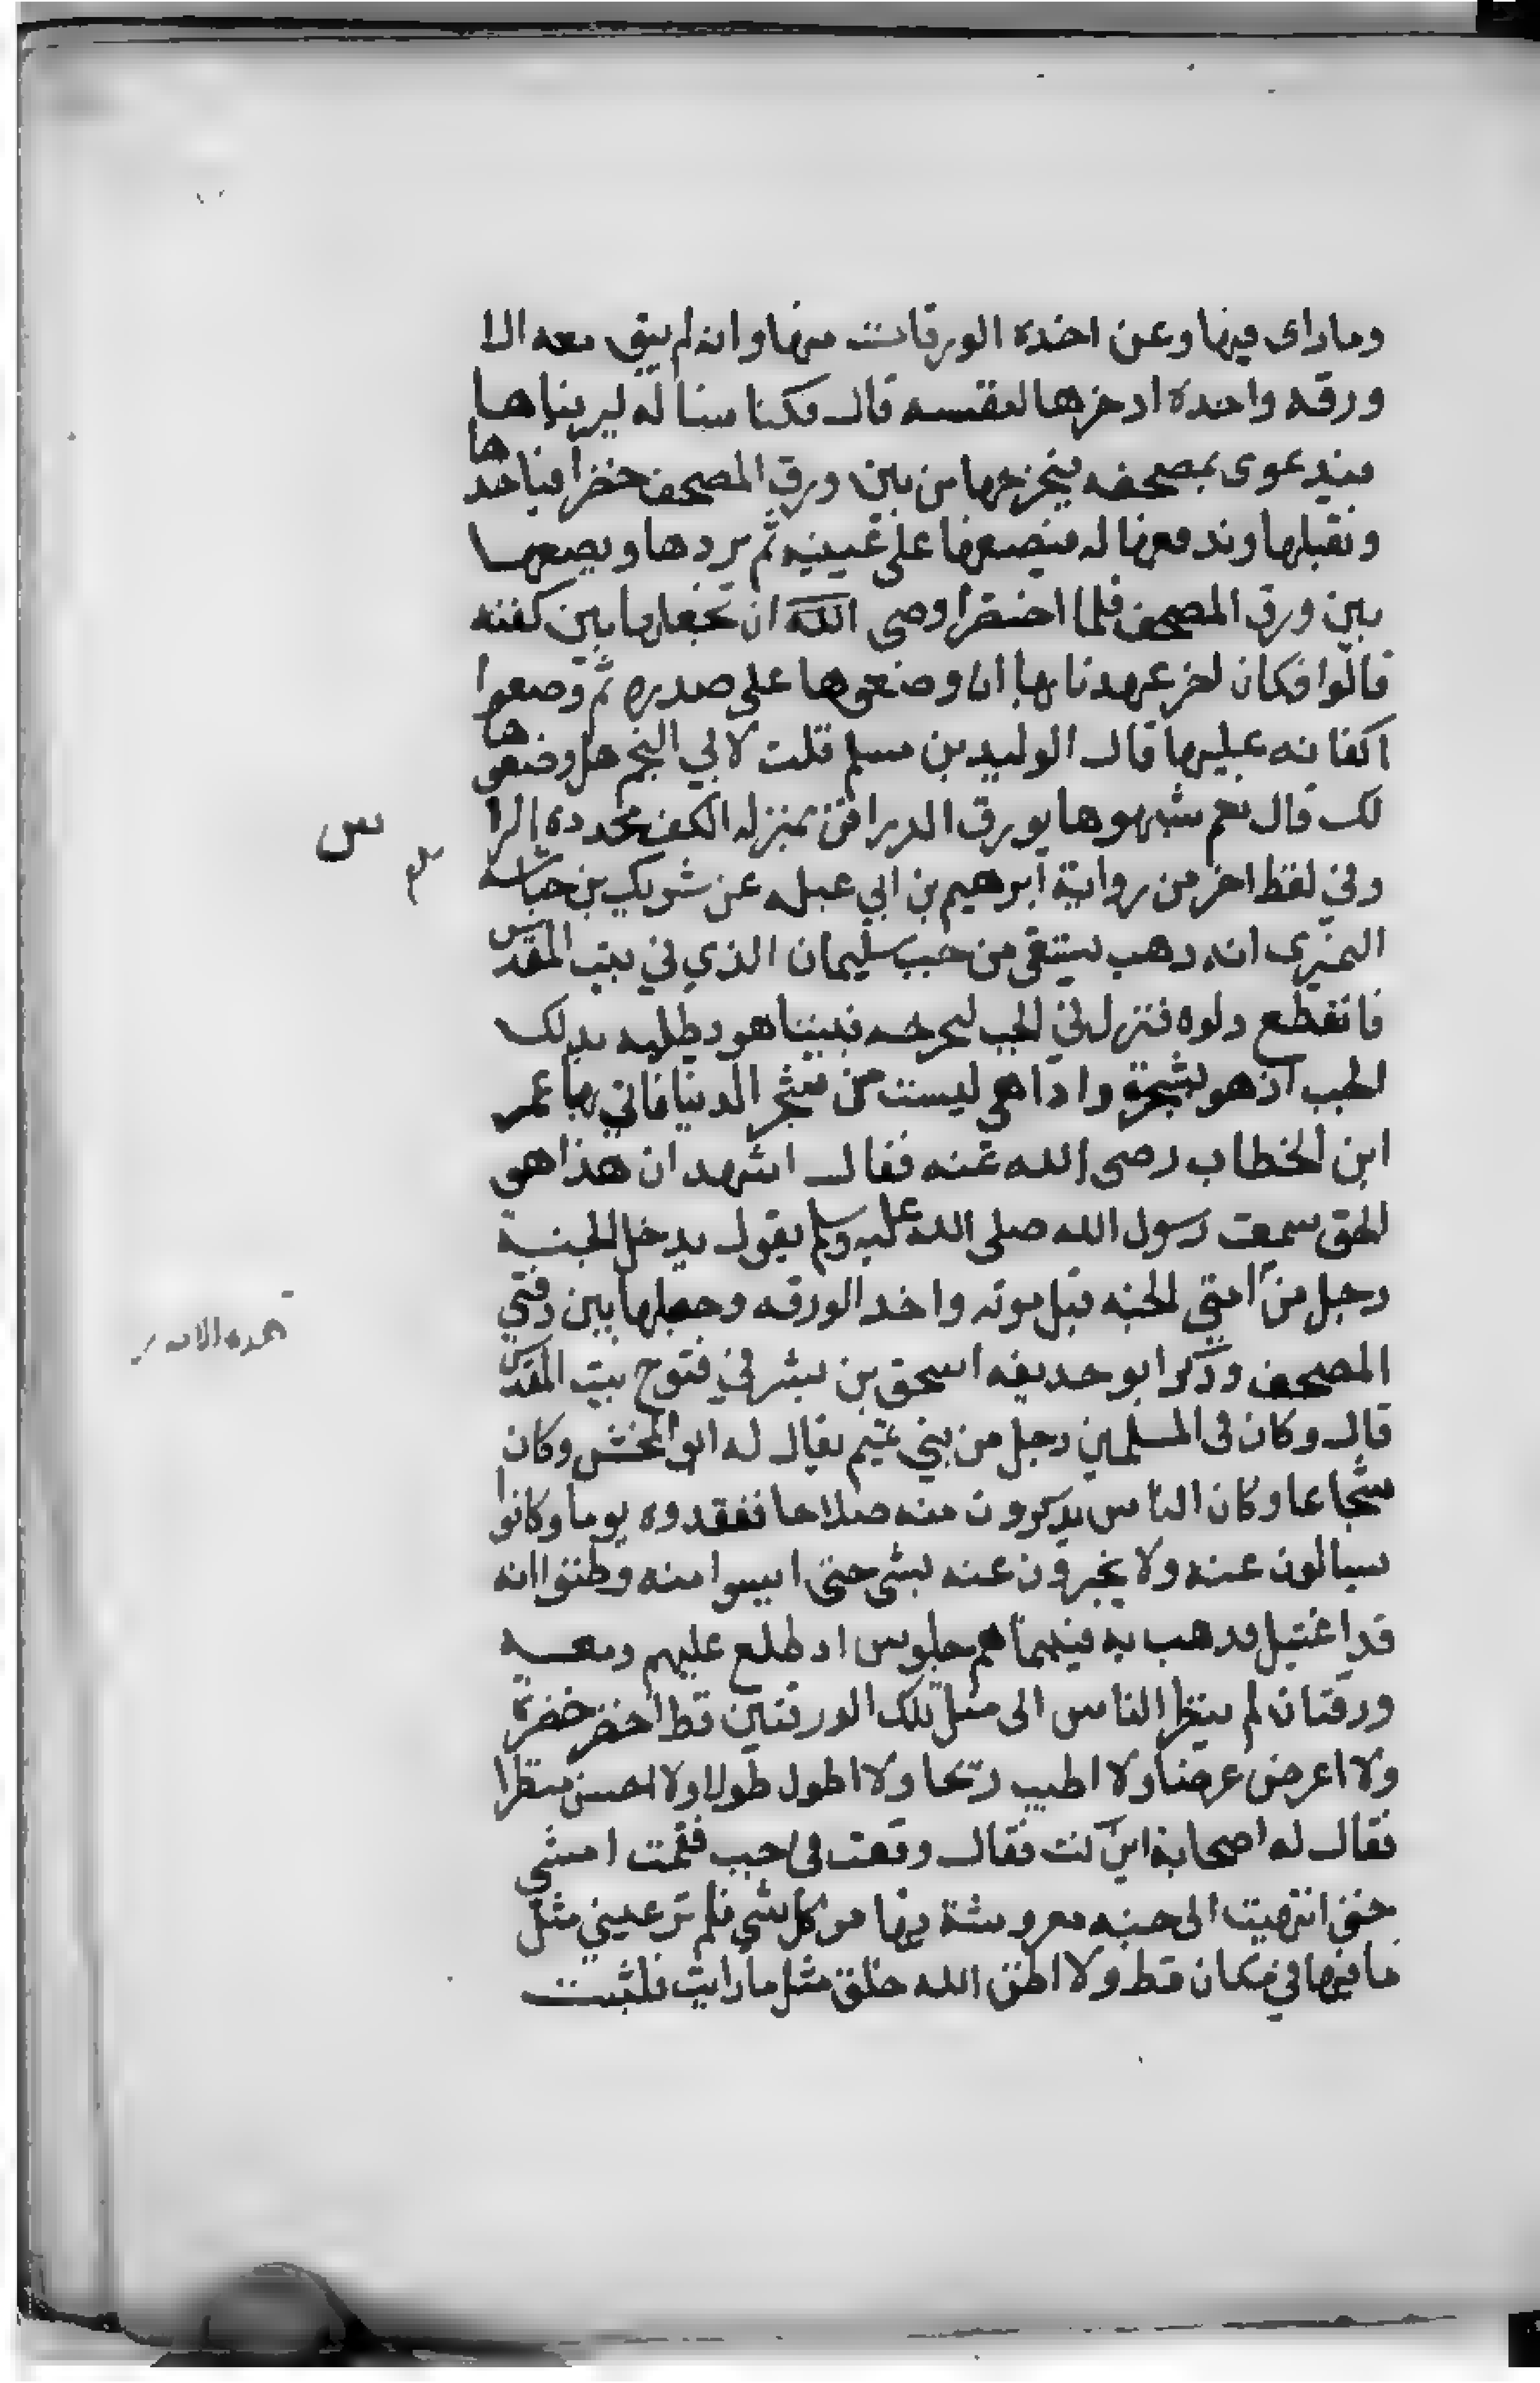 وما راى فيها وعن اخذه الورقات منها وانه لم يبق معه الا
ورقه واحده ادخرها لنفسه قال فكنا نساله ليريناها
فيدعوى بمصحفه فيخرجها من بين ورق المصحف خضرا فناخدها
ونقبلها وندفعها له فيضعها على عينيه ثم يردها ويضعها
بين ورق المصحف فلما احتضر اوصى الله ان تجعلها بين كفنه
قالوا فكان اخر عهدنا بها ان وضعوها على صدره ثم وضعوا
اكفانه عليها قال الوليد بن مسلم قلت لابي النجم هل وضعوها
لك قال نعم شبهوها بورق الدراقن بمنزله الكف محدده الرا
وفي لفظ اخر من رواية ابرهيم بن ابي عبله عن شريك بن حباشه
النميري انه دهب يستقي من جب سليمان الذي في بيت المقدس
فانقطع دلوه فنزل في الجب ليخرجه فبينا هو يطلبه بدلك
الجب اذ هو بشجرة واداهي ليست من شجر الدنيا فاتي بها عمر
ابن الخطاب رضى الله عنه فقال اشهد ان هذا هو
الحق سمعت رسول الله صلى الله عليه وسلم يقول يدخل الجنة
رجل من امتي الجنه قبل موته واخد الورقه وجعلها بين دفتي
المصحف وذكر ابو حديفه اسحق بن بشر في فتوح بيت المقدس
قال وكان في المسلمين رجل من بني تميم يقال له ابو المخش وكان
شجاعا وكان الناس يدكرون منه صلاحا ففقدوه يوما وكانوا
يسالون عنه ولا يخبرون عنه بشي حتى ايسوا منه وظنوا انه
قد اغتيل فدهب به فبينما هم جلوس اد طلع عليهم ومعه
ورقتان لم ينظر الناس الى مثل تلك الورقتين قط اخضر خضرة
ولا اعرض عرضا ولا اطيب ريحا ولا اطول طولا ولا احسن منظرا
فقال له اصحابه اين كنت فقال وقعت في جب فقمت امشي
حتى انتهيت الى جنه معروشة فيها من كل شي فلم تر عيني مثل
ما فيها في مكان قط ولا اظن الله خلق مثل ما رايت فلبثت